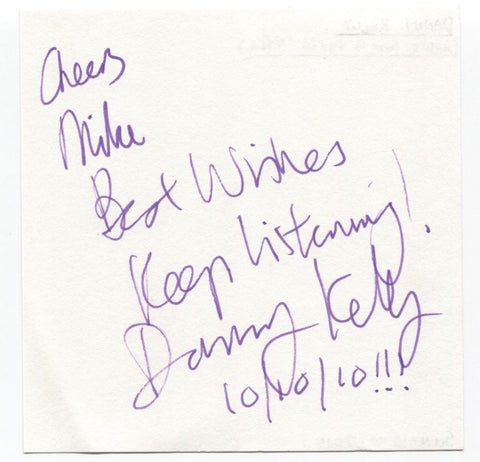 Cheers
Mike
Best Wishes
Keep Listening!
Danny Kelly
10/10/10!!!